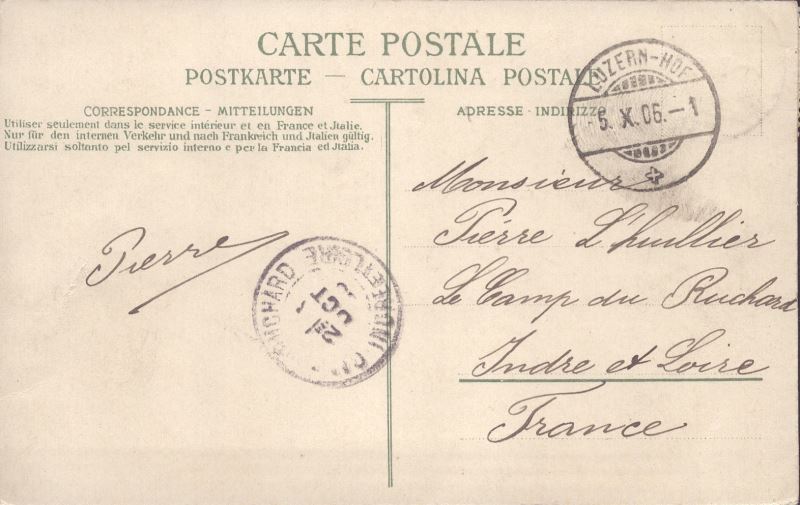 CARTE POSTALE
POSTKARTE — CARTOLINA POSTALE
CORRESPONDANCE - MITTEILUNGEN
Utiliser seulement dans le service intérieur et en France et Italie.
Nur für den internen Verkehr und nach Frankreich und Italien gültig.
Utilizzarsi soltanto pel servizio interno e per la Francia ed Italia.
ADRESSE - INDIRIZZO
LUZERN-HOF
5. X. 06. — 1
Monsieur
Pierre L'huillier
Le Camp du Ruchard
Indre et Loire
France
Pierre
RUCHARD
OCT